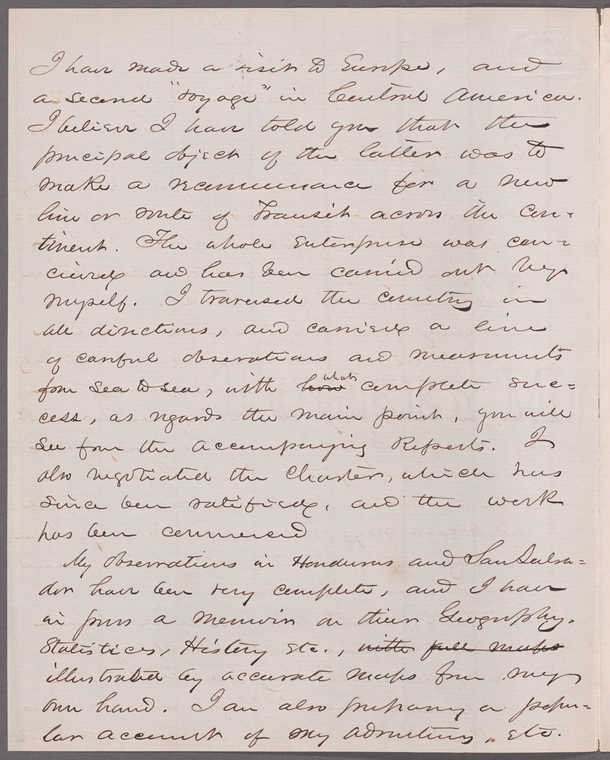 I have made a visit to Europe, and
a second "voyage" in Central America.
I believe I have told you that the
principal object of the latter was to
make a reconnaissance for a new
line or route of Transit across the Con-
tinent. The whole enterprise was con-
cieved and has been carried out by
myself. I traversed the country in
all directions, and carried a line
of careful observations and measurements
from sea to sea, with how what complete suc-
cess, as regards the main point, you will
see from the accompanying Reports. I
also negotiated the Charter, which has
since been ratified, and the work
has been commenced
My observations in Honduras and San Salva-
dor have been very complete, and I have
in press a memoir on their Geography,
Statistics, History etc., with full maps
illustrated by accurate maps from my
own hand. I am also preparing a popu-
lar account of my adventures, etc.